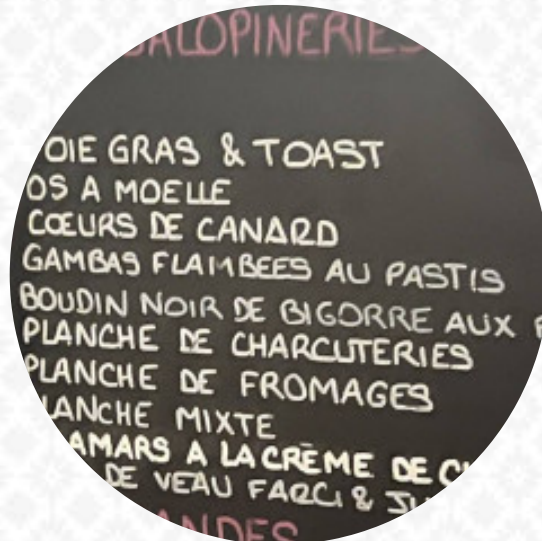 GALOPINERIES
OIE GRAS & TOAST
OS A MOELLE
CŒURS DE CANARD
GAMBAS FLAMBEES AU PASTIS
BOUDIN NOIR DE BIGORRE AUX
PLANCHE DE CHARCUTERIES
PLANCHE DE FROMAGES
PLANCHE MIXTE
AMARS A LA CRÈME DE
DE VEAU FARCI &
ANDES